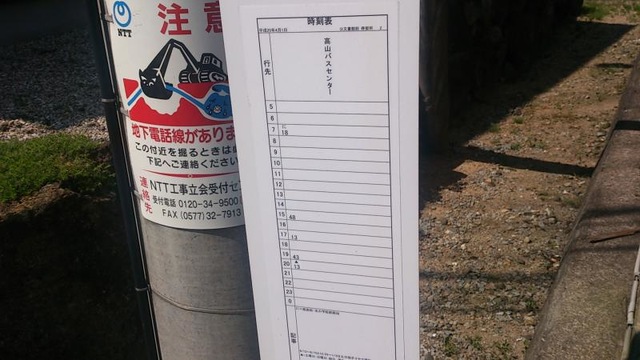 NTT
注意
地下電話線がありま
この付近を掘るときは
下記へご連絡ください
連絡先
NTT工事立会受付セ
受付電話 0120-34-9500
FAX (0577) 32-7913
時刻表
平成29年4月1日
行先
高山バスセンター
5
6
7 18
8
9
10
11
12
13
14
15 48
16
17 13
18
19 43
20 13
21
22
23
0
記事